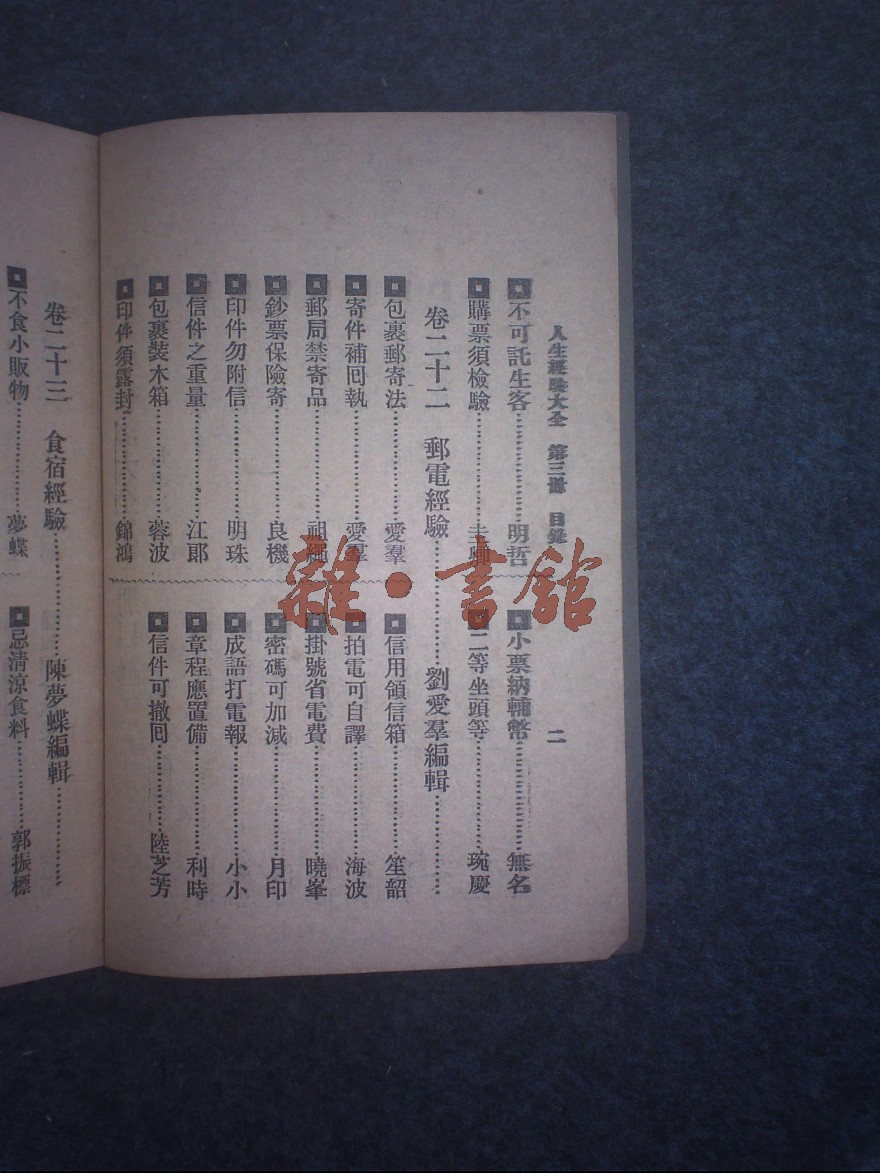 人生經驗大全 第三冊 目錄 二
不可託生客 明哲
小票納輔幣 無名
購票須檢驗 圭卿
二等坐頭等 琬慶
卷二十二 郵電經驗 劉愛羣編輯
包裹郵寄法 愛羣
信用領信箱 笙韶
寄件補回執 愛羣
拍電可自譯 海波
郵局禁寄品 祖繩
掛號省電費 曉峯
鈔票保險寄 良機
密碼可加減 月印
印件勿附信 明珠
成語打電報 小小
信件之重量 江郎
章程應置備 利時
包裹裝木箱 蓉波
信件可撤回 陸芝芳
印件須露封 錦鴻
卷二十三 食宿經驗 陳夢蝶編輯
不食小販物 夢蝶
忌清涼食料 郭振標
雜·書館